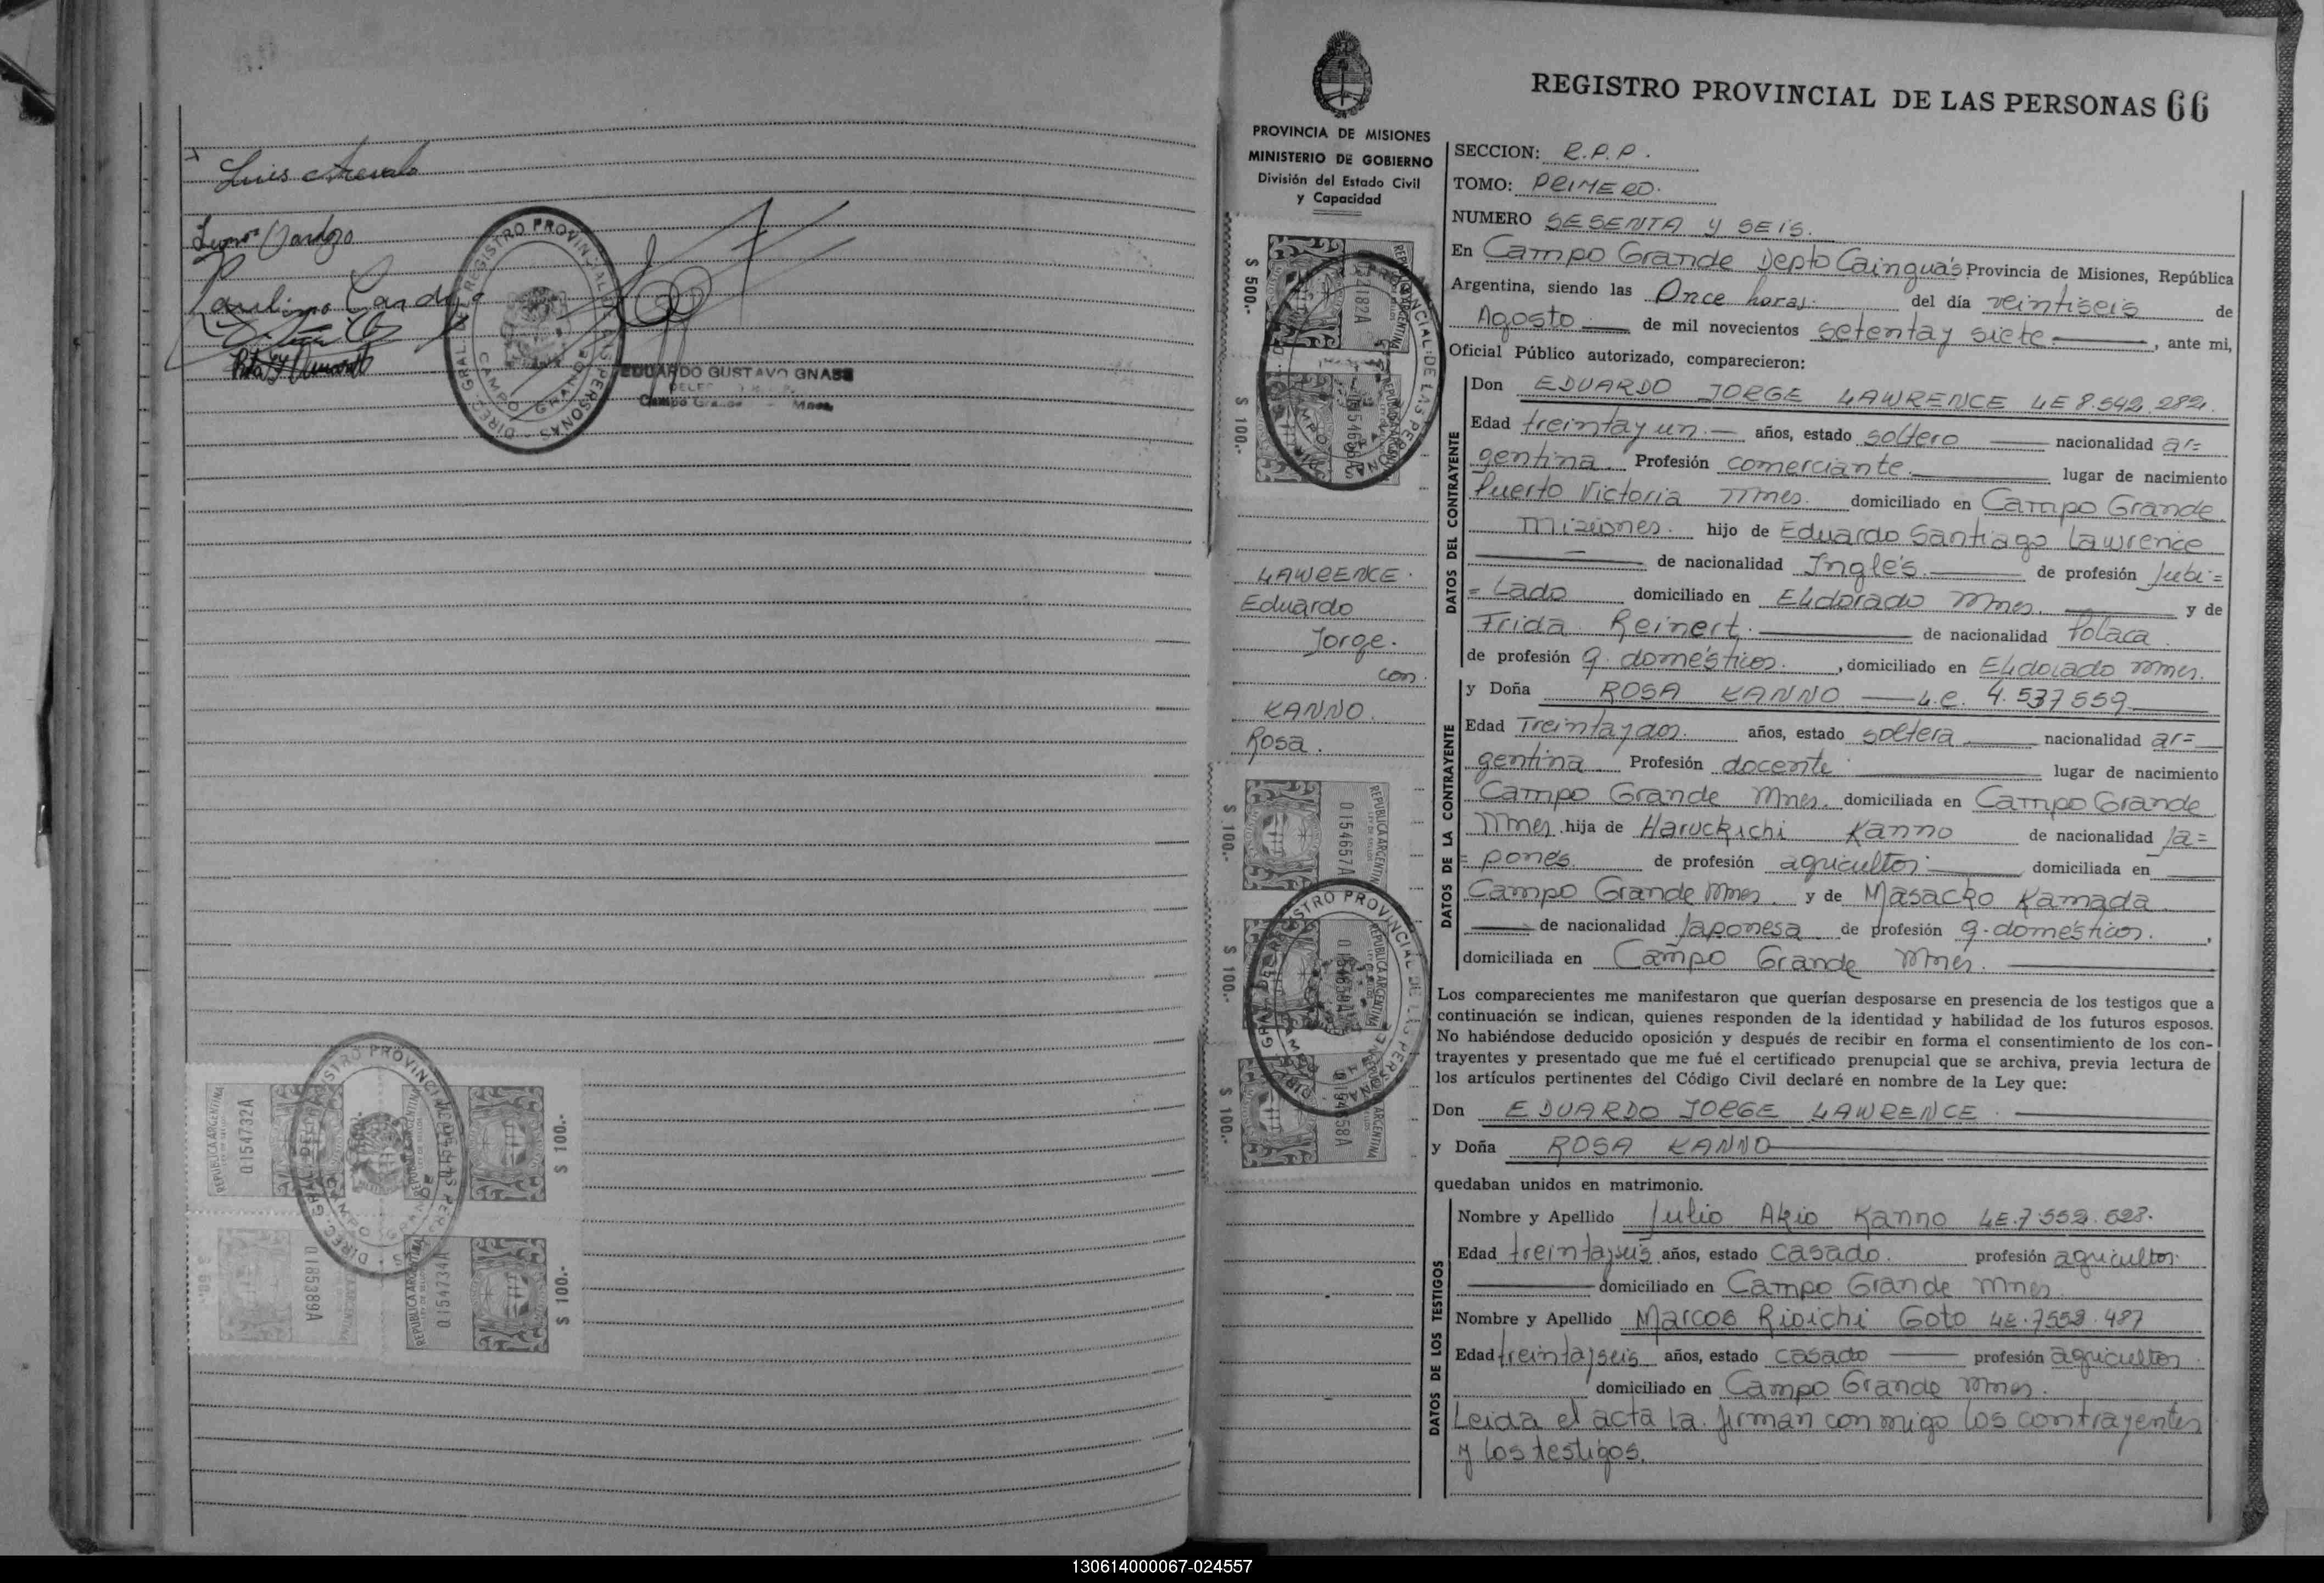 Luis Arevalo
Cardozo
Paulino Cardozo
DIREC. GRAL. DEL REGISTRO PROVINCIAL DE LAS PERSONAS
CAMPO GRANDE
EDUARDO GUSTAVO GNASS
Campo Grande Mnes.
REPUBLICA ARGENTINA
0154732A
$ 100.-
0185389A
REPUBLICA ARGENTINA
0154734A
$ 100.-
REGISTRO PROVINCIAL DE LAS PERSONAS 66
PROVINCIA DE MISIONES
MINISTERIO DE GOBIERNO
División del Estado Civil
y Capacidad
$ 500.-
$ 100.-
LAWRENCE.
Eduardo
Jorge.
con.
KANNO.
Rosa.
$ 100.-
0154657A
REPUBLICA ARGENTINA
$ 100.-
$ 100.-
SECCION: R.P.P.
TOMO: PRIMERO.
NUMERO SESENTA y SEIS.
En Campo Grande Depto Cainguás Provincia de Misiones, República
Argentina, siendo las Once horas. del día veintiseis de
Agosto de mil novecientos setentay siete. , ante mi,
Oficial Público autorizado, comparecieron:
DATOS DEL CONTRAYENTE
Don EDUARDO JORGE LAWRENCE LE 8.542.282.
Edad treintayun. años, estado soltero nacionalidad ar=
gentina. Profesión comerciante. lugar de nacimiento
Puerto Victoria Mnes. domiciliado en Campo Grande.
Misiones. hijo de Eduardo Santiago Lawrence
de nacionalidad Inglés. de profesión Jubi=
=lado domiciliado en Eldorado Mnes. y de
Frida Reinert. de nacionalidad Polaca.
de profesión q. domésticos. , domiciliado en Eldorado Mnes.
DATOS DE LA CONTRAYENTE
y Doña ROSA KANNO L.C. 4.537559
Edad Treintaydos. años, estado soltera nacionalidad ar=
gentina Profesión docente lugar de nacimiento
Campo Grande Mnes. domiciliada en Campo Grande
Mnes. hija de Haruckichi Kanno de nacionalidad Ja=
=ponés. de profesión agricultor domiciliada en
Campo Grande Mnes. y de Masacko Kamada
de nacionalidad Japonesa de profesión q.domésticos. ,
domiciliada en Campo Grande Mnes.
Los comparecientes me manifestaron que querían desposarse en presencia de los testigos que a
continuación se indican, quienes responden de la identidad y habilidad de los futuros esposos.
No habiéndose deducido oposición y después de recibir en forma el consentimiento de los con-
trayentes y presentado que me fué el certificado prenupcial que se archiva, previa lectura de
los artículos pertinentes del Código Civil declaré en nombre de la Ley que:
Don EDUARDO JORGE LAWRENCE.
y Doña ROSA KANNO
quedaban unidos en matrimonio.
DATOS DE LOS TESTIGOS
Nombre y Apellido Julio Akio Kanno LE.7.552.528.
Edad treintayseis años, estado casado. profesión agricultor
domiciliado en Campo Grande Mnes.
Nombre y Apellido Marcos Rioichi Goto LE.7552.487
Edad treintayseis años, estado casado profesión agricultor.
domiciliado en Campo Grande Mnes.
Leida el acta la firman con migo los contrayentes
y los testigos.
130614000067-024557